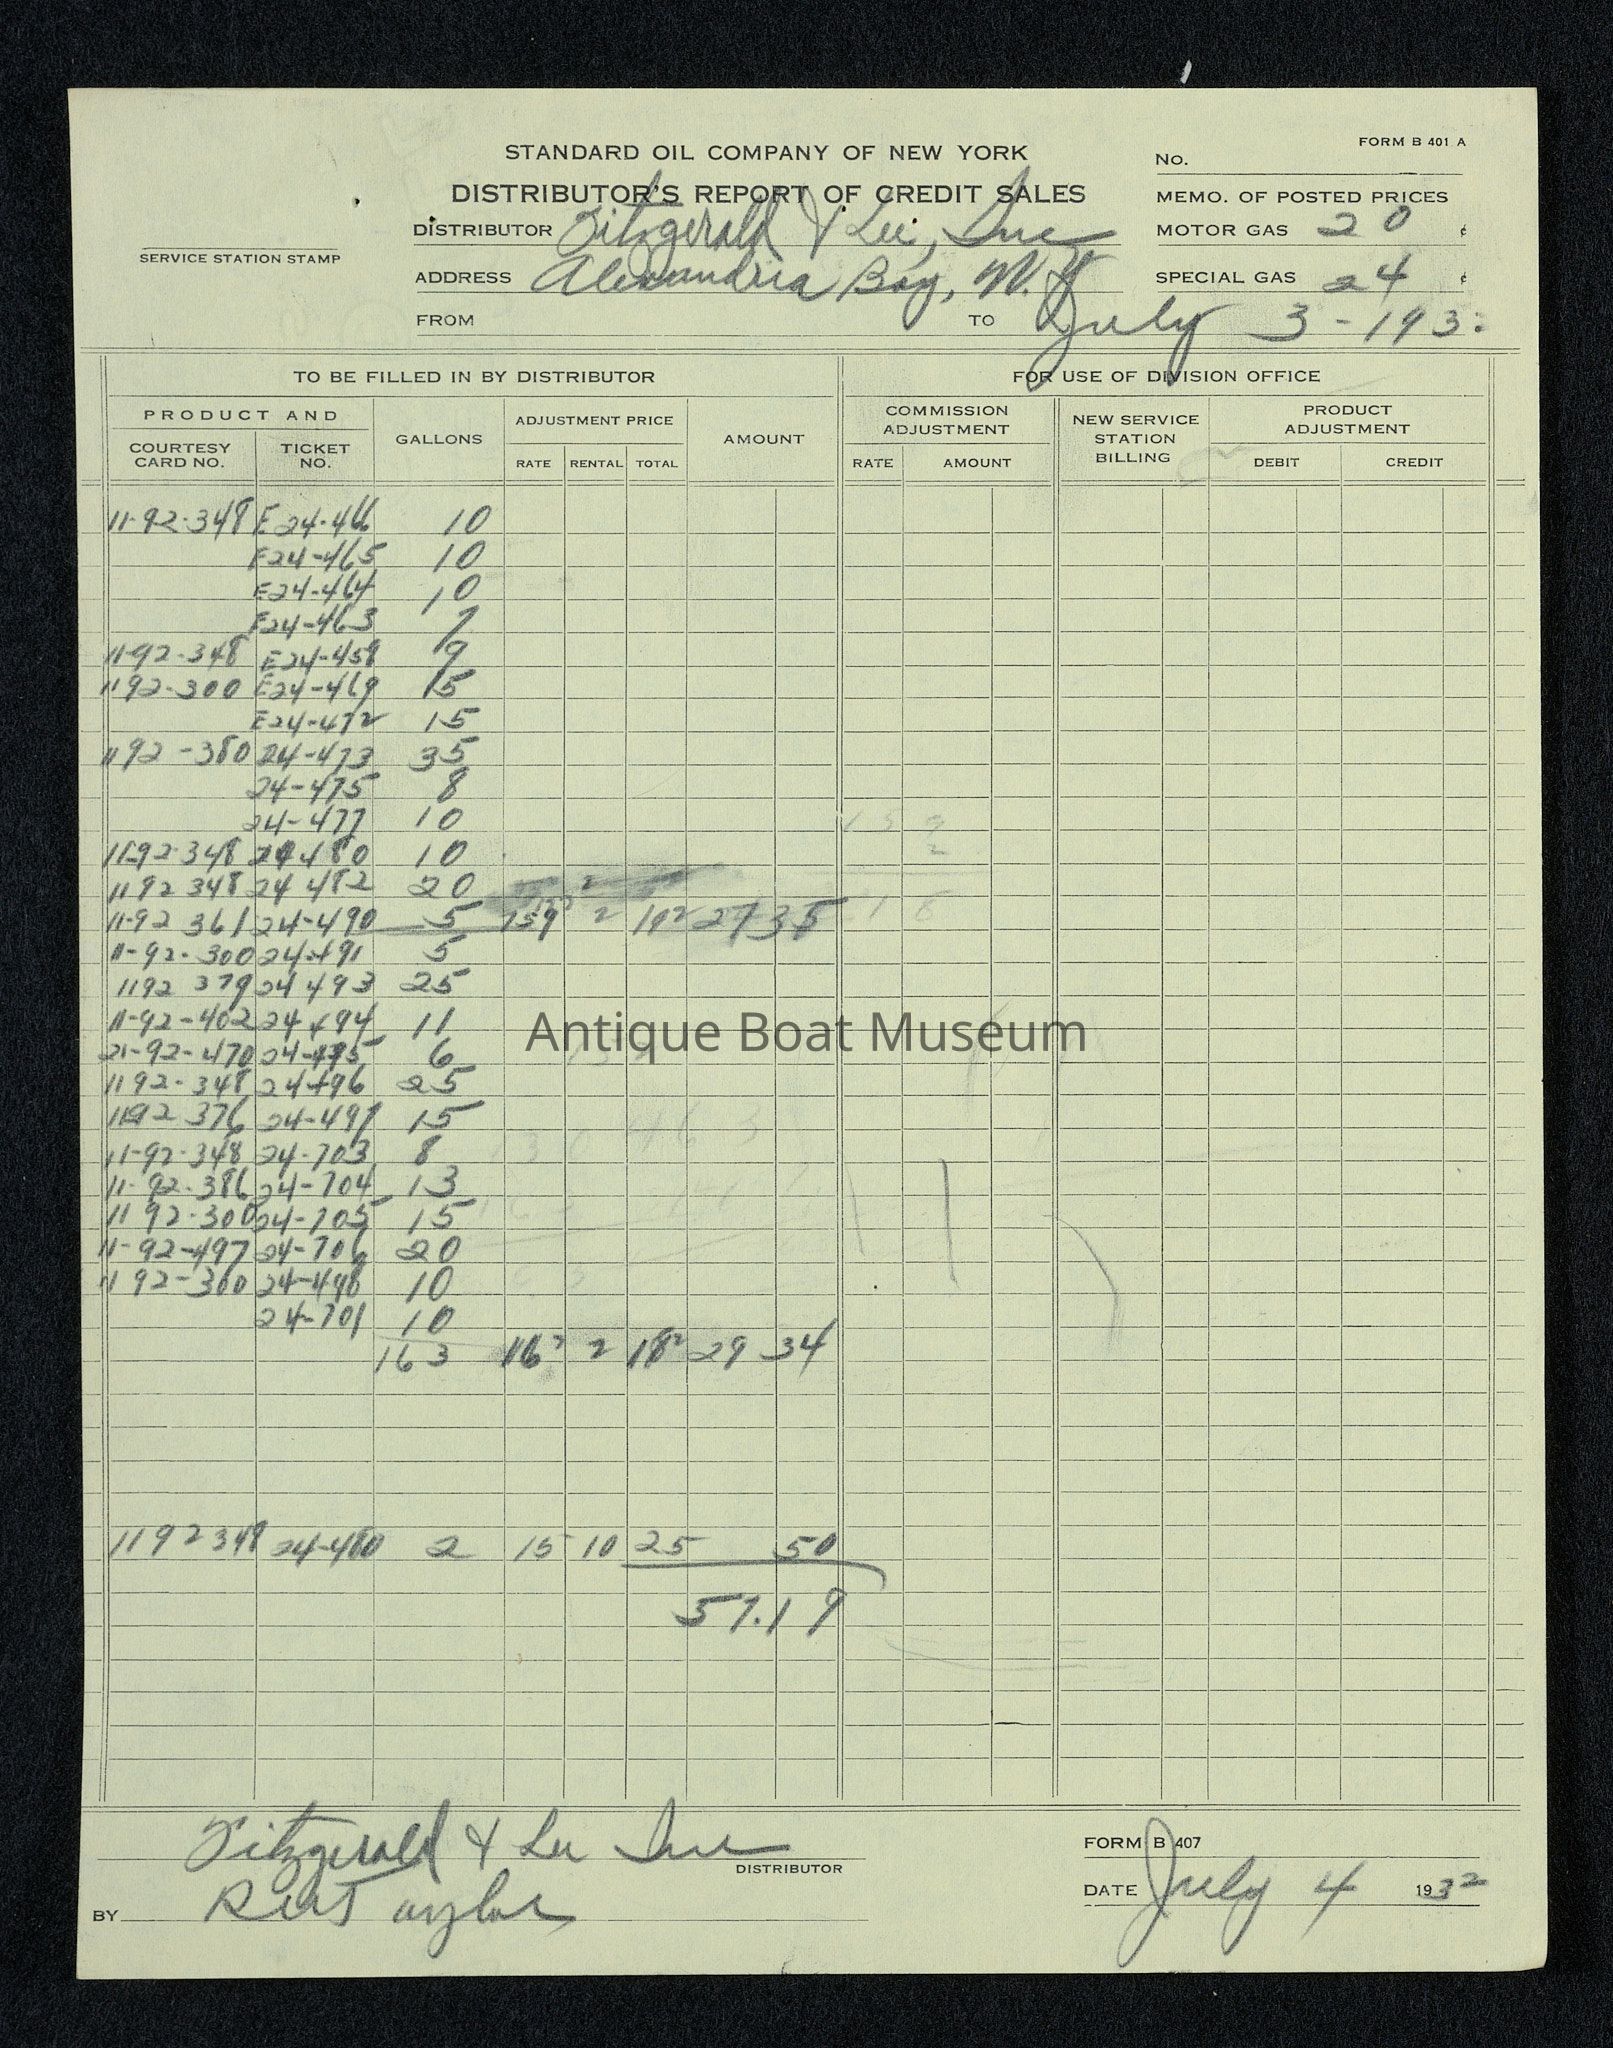 FORM B 401 A
STANDARD OIL COMPANY OF NEW YORK
NO.
DISTRIBUTOR'S REPORT OF CREDIT SALES
MEMO. OF POSTED PRICES
DISTRIBUTOR Fitzgerald & Lee, Inc
MOTOR GAS 20 ¢
SERVICE STATION STAMP
ADDRESS Alexandria Bay, N.Y
SPECIAL GAS 24 ¢
FROM TO July 3-193
TO BE FILLED IN BY DISTRIBUTOR FOR USE OF DIVISION OFFICE
PRODUCT AND
COURTESY CARD NO. TICKET NO. GALLONS ADJUSTMENT PRICE AMOUNT COMMISSION ADJUSTMENT NEW SERVICE STATION BILLING PRODUCT ADJUSTMENT
RATE RENTAL TOTAL RATE AMOUNT DEBIT CREDIT
11-92-348 E24-466 10
E24-465 10
E24-464 10
E24-463 7
11-92-348 E24-459 9
1192-300 E24-469 15
E24-472 15
1192-380 24-473 35
24-475 8
24-477 10
11-92-348 24480 10
1192 348 24 482 20
11-92 361 24-490 5 159 2 27 35
11-92-300 24491 5
1192 379 24 493 25
11-92-402 24 494 11
21-92-470 24-495 6
1192-348 24496 25
1192 376 24-497 15
11-92-348 24-703 8
11-92-386 24-704 13
11 92-300 24-705 15
11-92-497 24-706 20
11 92-300 24-498 10
24-701 10
163 16² 2 18² 29 34
1192348 24-480 2 15 10 25 50
57.19
Fitzgerald & Lee Inc
DISTRIBUTOR
FORM B 407
DATE July 4 1932
BY Taylor
Antique Boat Museum